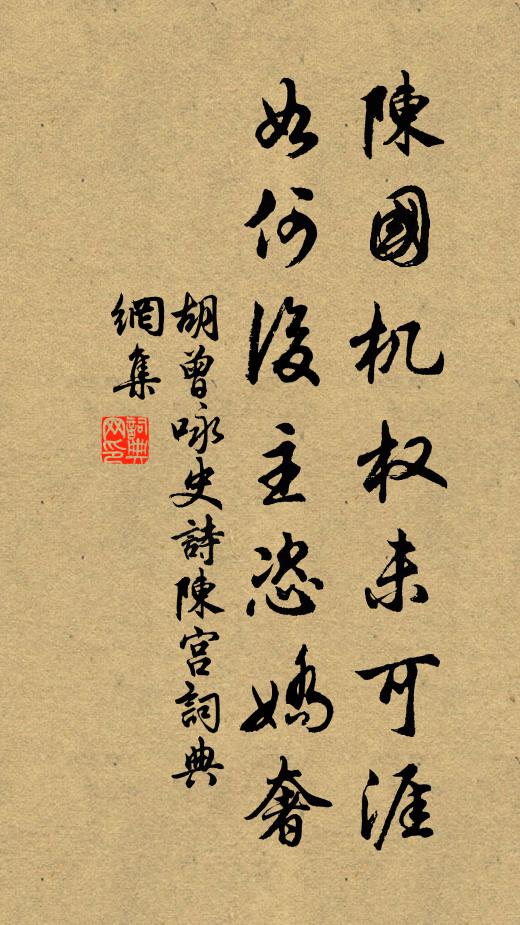 陳國机权未可涯
如何後主恣嬌奢
胡曾咏史詩陳宫詞典
網集
詞典
网印